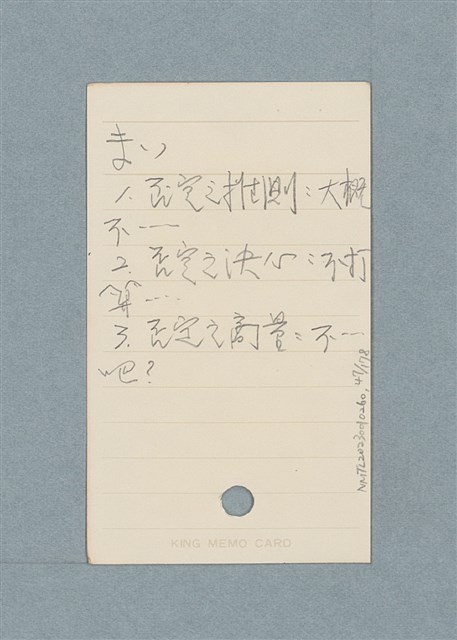 まい
1. 否定之推測：大概
不……
2. 否定之決心：不打
算……
3. 否定之商量：不…
吧？
KING MEMO CARD
NMTL20230010260, 47/178